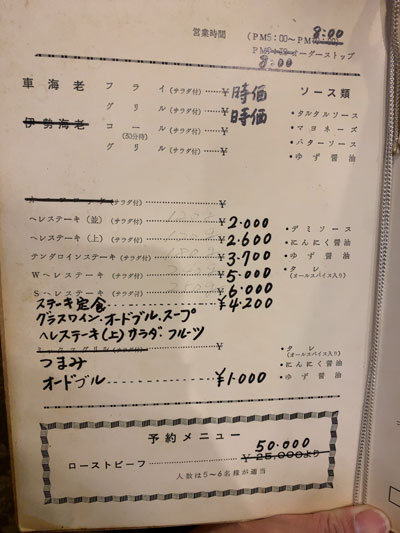 営業時間 (PM5:00～PM 8:00
オーダーストップ
8:00
車海老 フライ(サラダ付) ¥ 時価 ソース類
グリル(サラダ付) ¥ 時価 ・タルタルソース
伊勢海老 コール(サラダ付) ¥ ・マヨネーズ
(50分待) ・バターソース
グリル(サラダ付) ¥ ・ゆず醤油
(サラダ付) ¥
ヘレステーキ(並)(サラダ付) ¥2.000 ・デミソース
ヘレステーキ(上)(サラダ付) ¥2.600 ・にんにく醤油
テンダロインステーキ(サラダ付) ¥3.700 ・ゆず醤油
Wヘレステーキ(サラダ付) ¥5.000 ・タレ
(オールスパイス入り)
Sヘレステーキ(サラダ付) ¥6.000
ステーキ定食 ¥4.200
グラスワイン.オードブル.スープ
ヘレステーキ(上)サラダ.フルーツ
(サラダ付) ¥ ・タレ
(オールスパイス入り)
つまみ ・にんにく醤油
オードブル ¥1.000 ・ゆず醤油
予約メニュー
50.000
ローストビーフ ¥25,000より
人数は5～6名様が適当